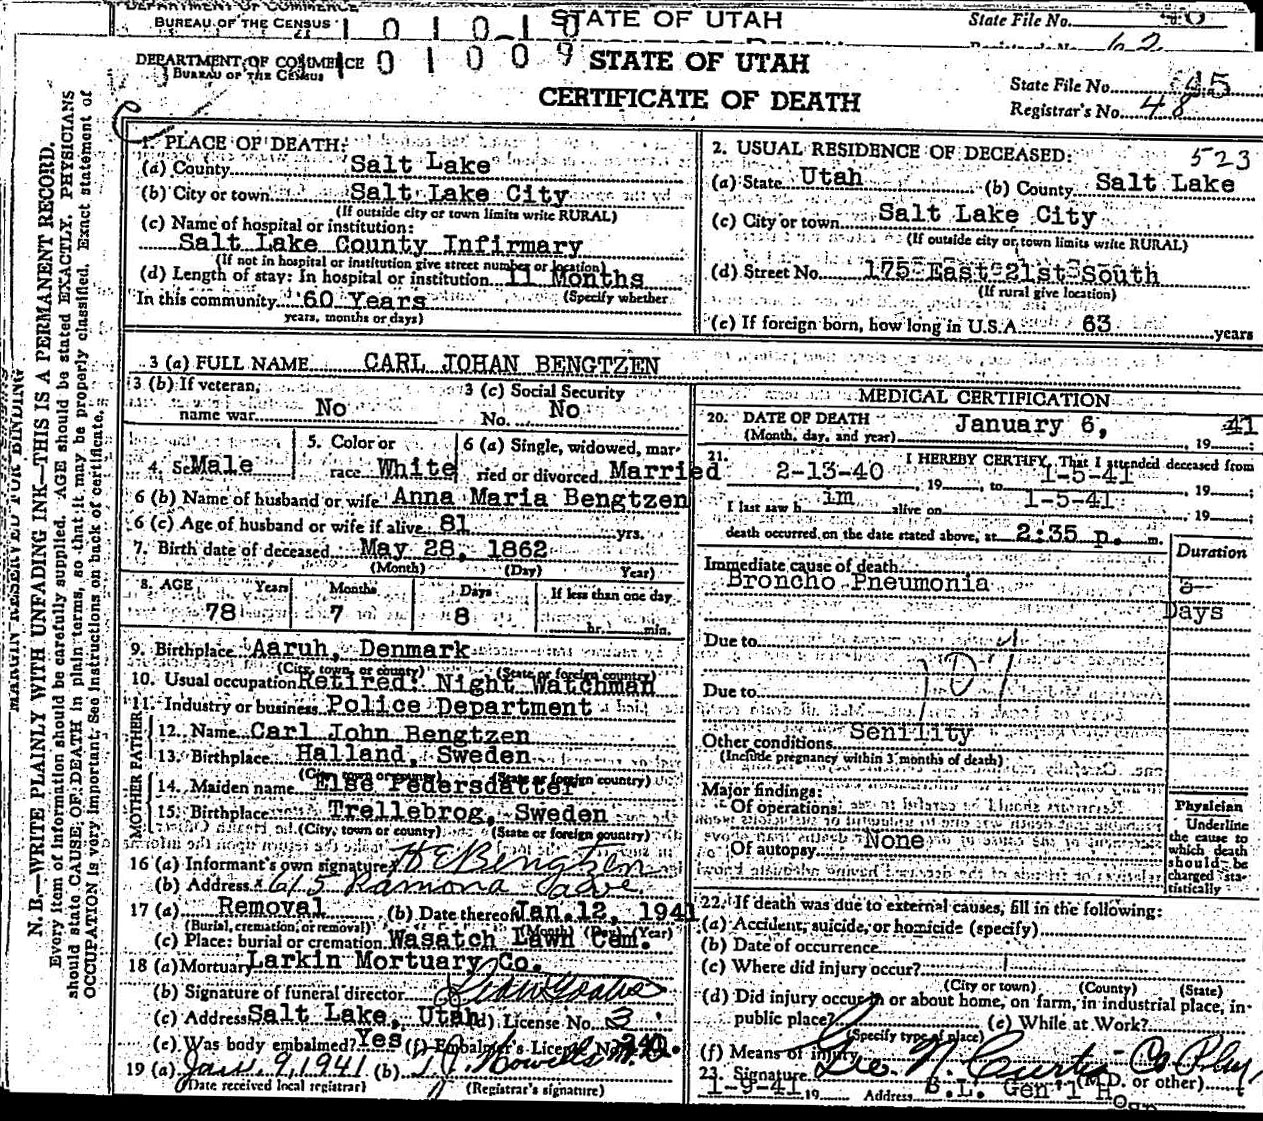 DEPARTMENT OF COMMERCE
BUREAU OF THE CENSUS
1 0 1 0 1 0
STATE OF UTAH
State File No. 40
62
DEPARTMENT OF COMMERCE
BUREAU OF THE CENSUS
0 1 0 0 9
STATE OF UTAH
CERTIFICATE OF DEATH
State File No. 45
Registrar's No. 48
MARGIN RESERVED FOR BINDING
N. B.—WRITE PLAINLY WITH UNFADING INK—THIS IS A PERMANENT RECORD.
Every item of information should be carefully supplied. AGE should be stated EXACTLY. PHYSICIANS
should state CAUSE OF DEATH in plain terms, so that it may be properly classified. Exact statement of
OCCUPATION is very important. See Instructions on back of certificate.
1. PLACE OF DEATH:
(a) County Salt Lake
(b) City or town Salt Lake City
(If outside city or town limits write RURAL)
(c) Name of hospital or institution:
Salt Lake County Infirmary
(If not in hospital or institution give street number or location)
(d) Length of stay: In hospital or institution 11 Months
(Specify whether
In this community 60 Years
years, months or days)
2. USUAL RESIDENCE OF DECEASED: 523
(a) State Utah (b) County Salt Lake
(c) City or town Salt Lake City
(If outside city or town limits write RURAL)
(d) Street No. 175 East 21st South
(If rural give location)
(e) If foreign born, how long in U.S.A. 63 years
3 (a) FULL NAME CARL JOHAN BENGTZEN
3 (b) If veteran, name war No
3 (c) Social Security No. No
4. Sex Male
5. Color or race White
6 (a) Single, widowed, married or divorced Married
6 (b) Name of husband or wife Anna Maria Bengtzen
6 (c) Age of husband or wife if alive 81 yrs.
7. Birth date of deceased May 28, 1862
(Month) (Day) Year)
8. AGE Years Months Days If less than one day
78 7 8 hr. min.
9. Birthplace Aaruh, Denmark
(City, town, or county) (State or foreign country)
10. Usual occupation Retired: Night Watchman
11. Industry or business Police Department
FATHER
12. Name Carl John Bengtzen
13. Birthplace Halland, Sweden
(City, town or county) (State or foreign country)
MOTHER
14. Maiden name Else Pedersdatter
15. Birthplace Trellebrog, Sweden
(City, town or county) (State or foreign country)
16 (a) Informant's own signature H E Bengtzen
(b) Address 615 Ramona Ave
17 (a) Removal (b) Date thereof Jan. 12, 1941
(Burial, cremation, or removal) (Month) (Day) (Year)
(c) Place: burial or cremation Wasatch Lawn Cem.
18 (a) Mortuary Larkin Mortuary Co.
(b) Signature of funeral director
(c) Address Salt Lake, Utah (d) License No. 3
(e) Was body embalmed? Yes (f) Embalmer's License No.
19 (a) Jan. 9, 1941 (b)
(Date received local registrar) (Registrar's signature)
MEDICAL CERTIFICATION
20. DATE OF DEATH January 6, 1941
(Month, day, and year)
21. I HEREBY CERTIFY, That I attended deceased from
2-13-40, 19 to 1-5-41, 19 ;
I last saw him alive on 1-5-41, 19 ;
death occurred on the date stated above, at 2:35 p. m.
Duration
Immediate cause of death
Broncho Pneumonia
Days
Due to
Due to
Other conditions Senility
(Include pregnancy within 3 months of death)
Major findings:
Of operations
Of autopsy None
Physician
Underline
the cause to
which death
should be
charged statistically
22. If death was due to external causes, fill in the following:
(a) Accident, suicide, or homicide (specify)
(b) Date of occurrence
(c) Where did injury occur?
(City or town) (County) (State)
(d) Did injury occur in or about home, on farm, in industrial place, in
public place? (e) While at Work?
(Specify type of place)
(f) Means of injury
23. Signature Geo. N. Curtis Co Phy.
(M.D. or other)
1-9-41 19 Address S.L. Gen'l Hosp